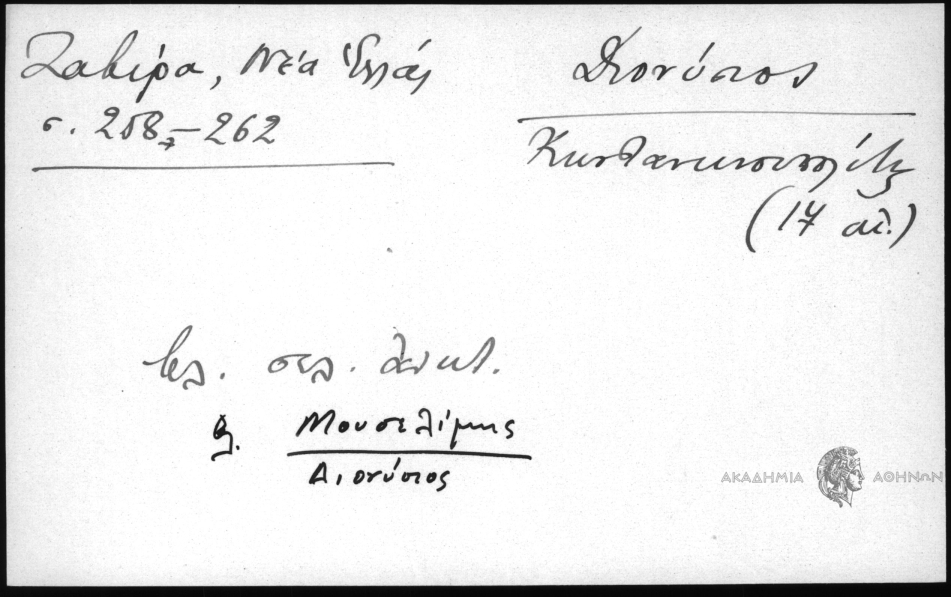 Ζαβίρα, Νέα Ἑλλάς
σ. 258-262
Διονύσιος
Κωνσταντινουπολίτης
(17 αἰ.)
βλ. σελ.
Μουσελίμης
Διονύσιος
ΑΚΑΔΗΜΙΑ ΑΘΗΝΩΝ